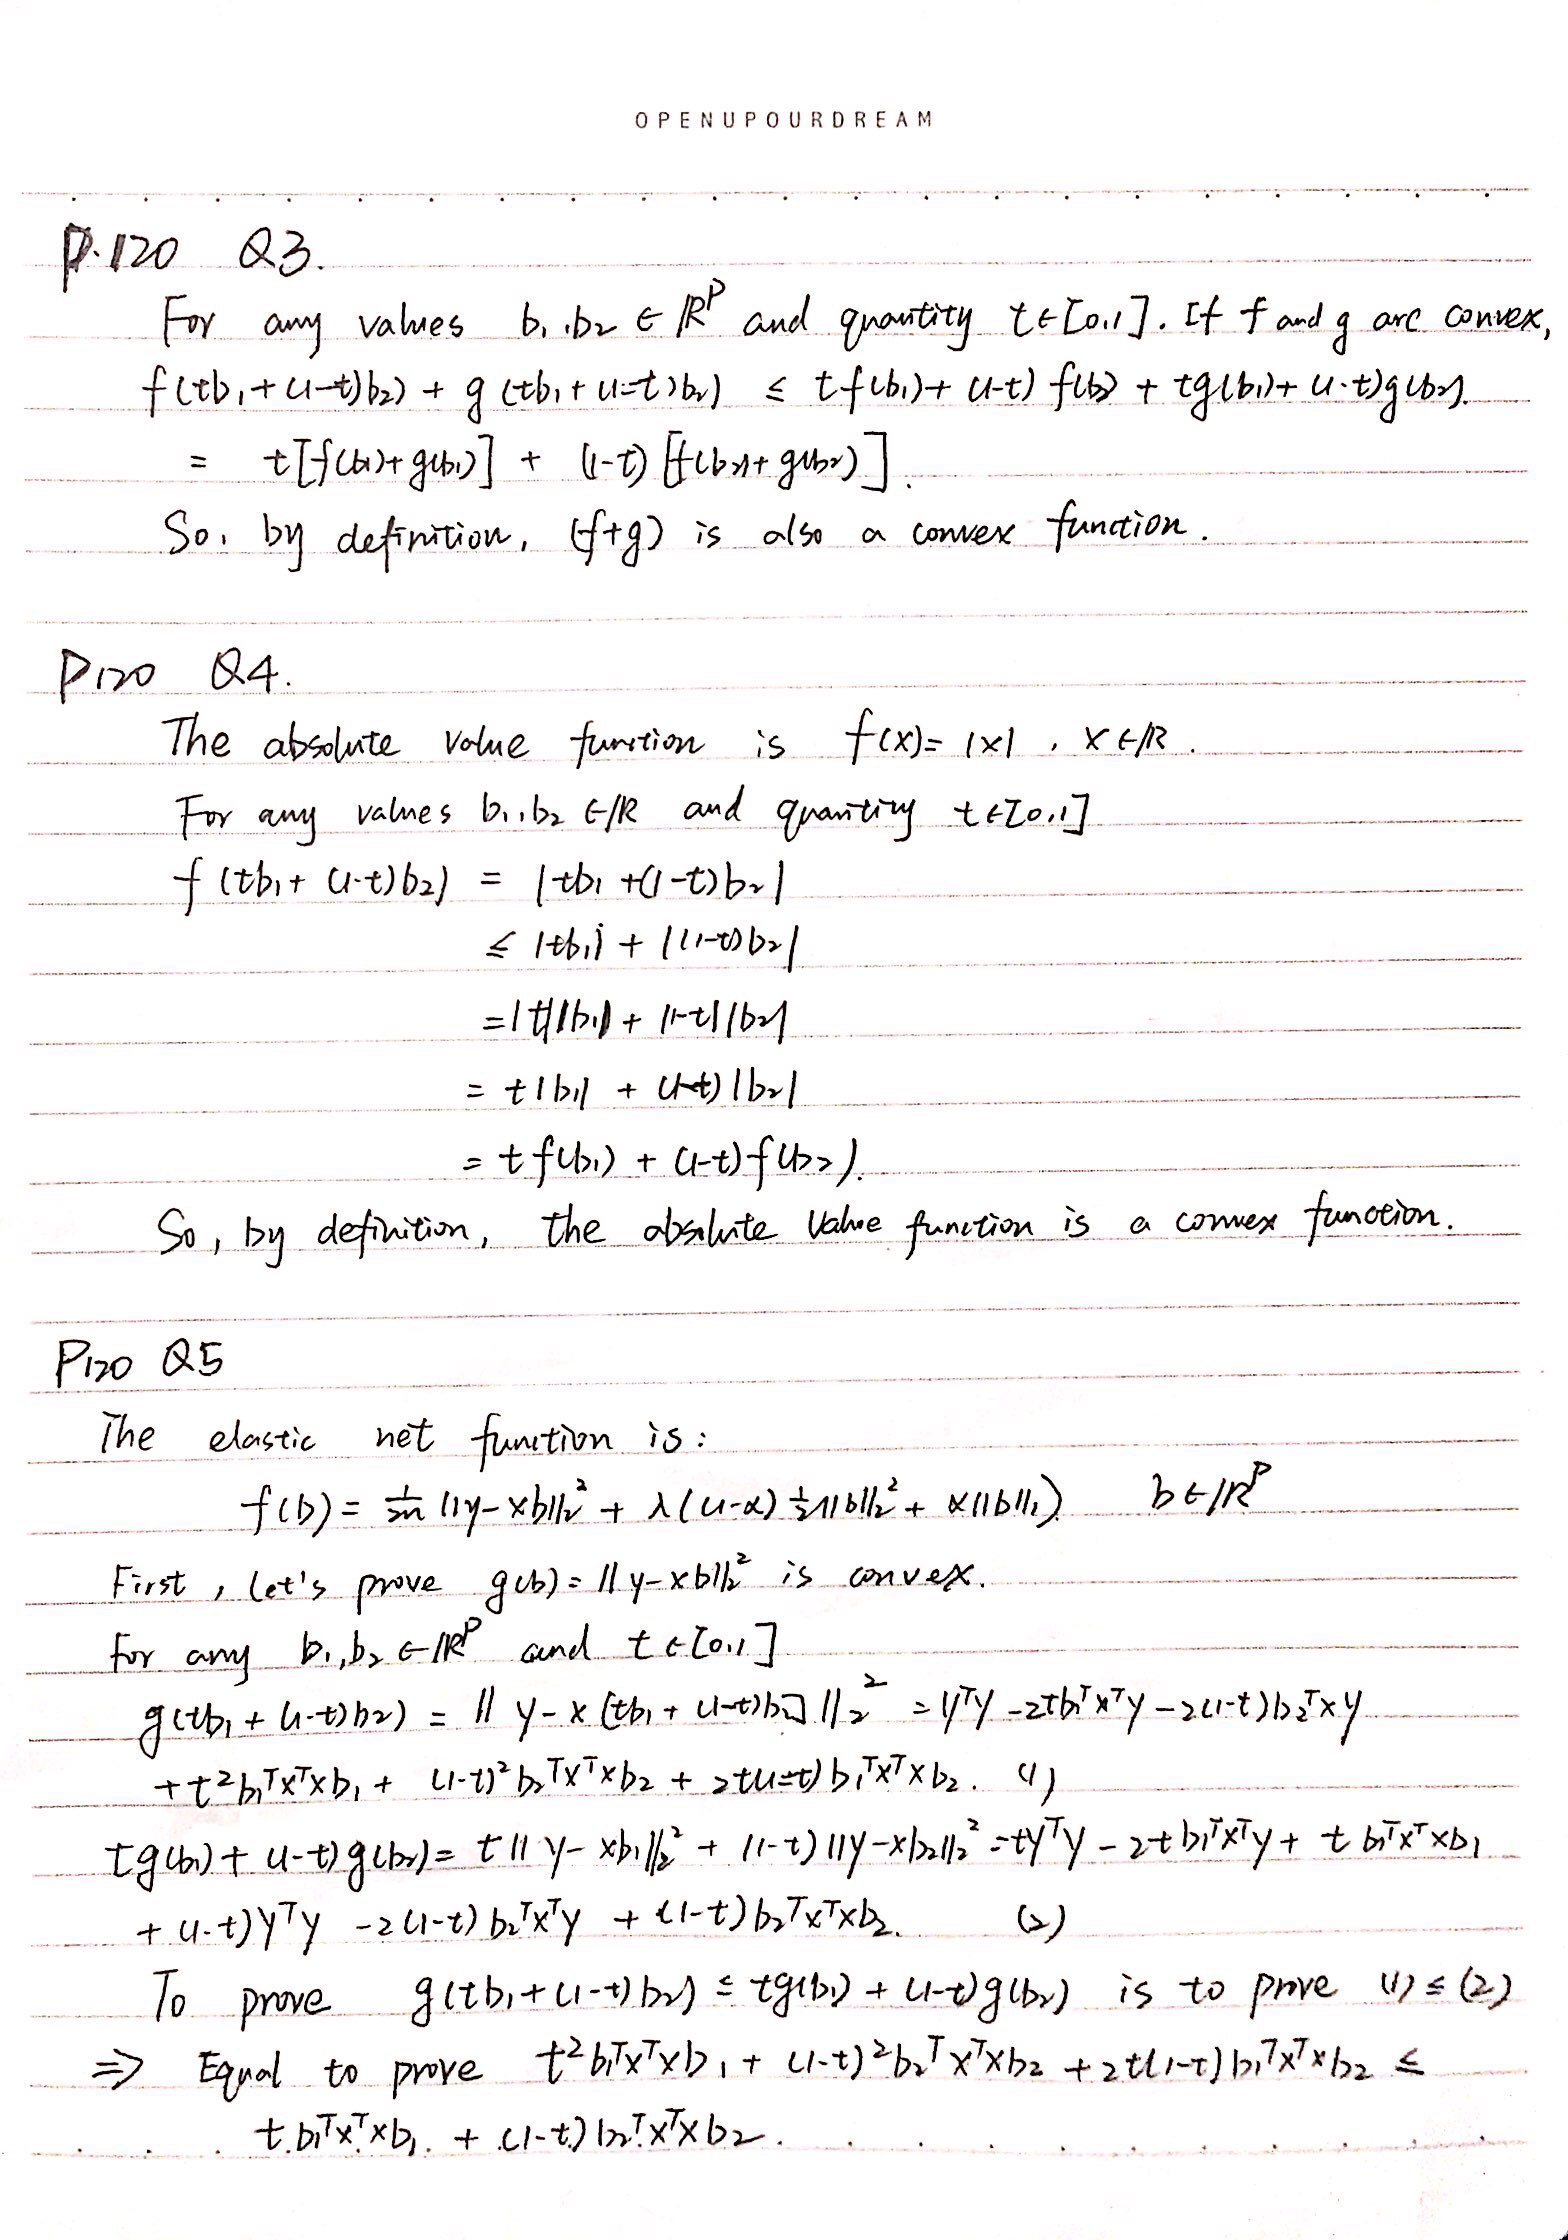 OPENUPOURDREAM
P.120 Q3.
For any values b₁,b₂ ∈ ℝᴾ and quantity t∈[0,1]. If f and g are convex,
f(tb₁+(1-t)b₂) + g(tb₁+(1-t)b₂) ≤ tf(b₁)+(1-t)f(b₂)+tg(b₁)+(1-t)g(b₂).
= t[f(b₁)+g(b₁)] + (1-t)[f(b₂)+g(b₂)].
So, by definition, (f+g) is also a convex function.
P120 Q4.
The absolute value function is f(x)=|x|, x∈ℝ.
For any values b₁,b₂∈ℝ and quantity t∈[0,1]
f(tb₁+(1-t)b₂) = |tb₁+(1-t)b₂|
≤ |tb₁| + |(1-t)b₂|
=|t||b₁| + |1-t||b₂|
= t|b₁| + (1-t)|b₂|
= tf(b₁) + (1-t)f(b₂).
So, by definition, the absolute value function is a convex function.
P120 Q5
The elastic net function is:
f(b) = 1/2n ||y-xb||₂² + λ((1-α)½||b||₂² + α||b||₁) b∈ℝᴾ
First, let's prove g(b)=||y-xb||₂² is convex.
For any b₁,b₂∈ℝᴾ and t∈[0,1]
g(tb₁+(1-t)b₂) = ||y-x[tb₁+(1-t)b₂]||₂² = yᵀy -2tb₁ᵀxᵀy -2(1-t)b₂ᵀxy
+t²b₁ᵀxᵀxb₁ + (1-t)²b₂ᵀxᵀxb₂ + 2t(1-t)b₁ᵀxᵀxb₂. (1)
tg(b₁)+(1-t)g(b₂)= t||y-xb₁||₂² + (1-t)||y-xb₂||₂² =tyᵀy -2tb₁ᵀxᵀy + tb₁ᵀxᵀxb₁
+(1-t)yᵀy -2(1-t)b₂ᵀxᵀy +(1-t)b₂ᵀxᵀxb₂. (2)
To prove g(tb₁+(1-t)b₂) ≤ tg(b₁)+(1-t)g(b₂) is to prove (1)≤(2)
⇒ Equal to prove t²b₁ᵀxᵀxb₁ + (1-t)²b₂ᵀxᵀxb₂ +2t(1-t)b₁ᵀxᵀxb₂ ≤
tb₁ᵀxᵀxb₁ + (1-t)b₂ᵀxᵀxb₂.